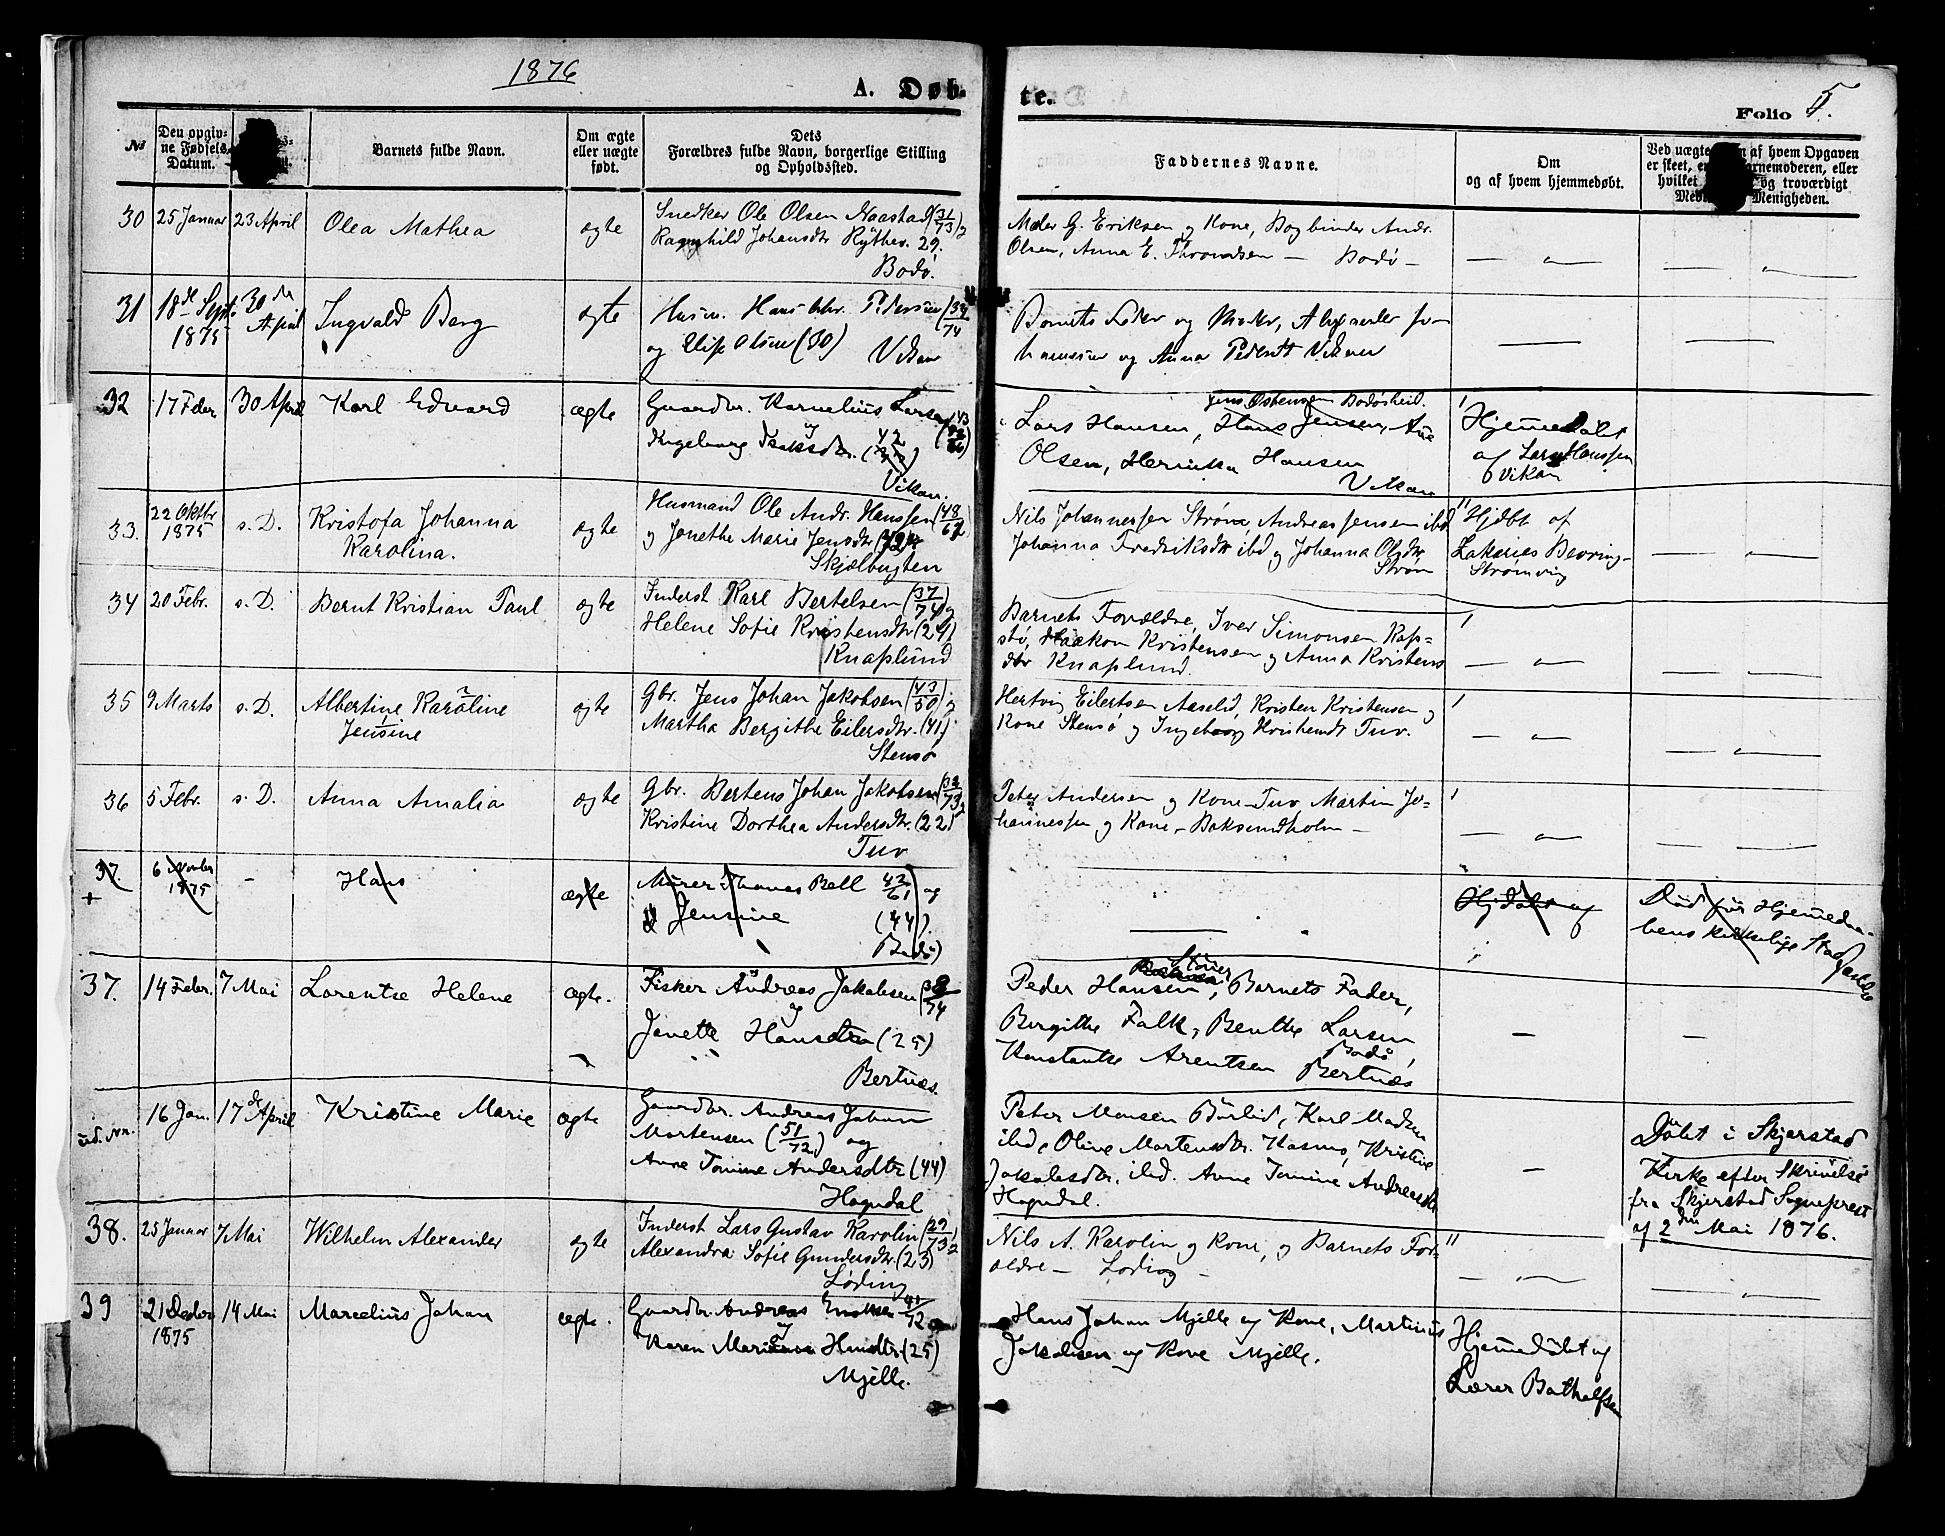 1876
A. Døb-
te.
Folio 5.
No
Den opgiv-
ne Fødsels
Datum.
Barnets fulde Navn.
Om ægte
eller uægte
født.
Dets
Forældres fulde Navn, borgerlige Stilling
og Opholdssted.
Faddernes Navne.
Om
og af hvem hjemmedøbt.
Ved uægte af hvem Opgaven
er skeet, en Barnemoderen, eller
hvilket og troværdigt
Menigheden.
30 25 Januar 23 April Olea Mathea ægte
Snedker Ole Olsen Naastad (31/73) &
Ragnhild Johansdtr Rÿther. 29.
Bodø.
Maler G. Eriksen og Kone, Bogbinder Andr.
Olsen, Anna E. Throndsen — Bodø —
31 18de Sept. 1875 30te April Ingvald Berg ægte
Husm. Hans Chr. Pedersen (38/74)
og Elise Olsen (30) Vikan
Barnets Fader og Moder,
og Anna Pedersdt Vikan
32 17 Febr 30 April Karl Edvard ægte
Gaardbr. Kornelius Larsen
Ingeborg Isaksdtr.
Vikan.
Jens Ostensen Bodøsheid.
Lars Hansen, Hans Jensen, Ane
Olsen, Henrika Hansen
Vikan
Hjemmedøbt
af Lars Hanssen
Vikan
33. 22 Oktbr 1875 s. D. Kristofa Johanna
Karolina. ægte
Husmand Ole Andr. Hanssen (48/62)
og Jonethe Marie Jensdtr
Skjælbugten
Nils Johannessen Strøm, Andreas Jensen ibd
Johanna Fredriksdtr ibd og Johanna Olsdtr
Strøm
Hjdbt af
Zakarias Bevring-
Strømvig
34 20 Febr. s. D. Bernt Kristian Paul ægte
Inderst Karl Bertelsen (37/74) og
Helene Sofie Kristensdtr (24)
Knaplund
Barnets Forældre, Iver Simonsen Kop-
stø, Haakon Kristensen og Anna Kristens
dtr Knaplund.
35 9 Marts s. D. Albertine Karoline
Jensine ægte
Gbr. Jens Johan Jakobsen (43/50) og
Martha Bergithe Eilersdtr. (41)
Stensø
Hertvig Eilertsen Aaselid, Kristen Kristensen og
Kone Stensø og Ingeborg Kristensdt Tuv.
36 5 Febr. s. D. Anna Amalia ægte
Gbr. Bertens Johan Jakobsen (32/73) &
Kristine Dorthea Andersdtr. (22)
Tuv
Peter Andersen og Kone Tuv Martin Jo-
hannessen og Kone — Baksundholm —
37 6 Novbr 1875 — Hans ægte
Murer Thomas Bell 42/61 og
Jensine (44).
Bodø
Hjdøbt og
Død før Hjemmedaa-
bens kirkelige Stadfæstelse
37. 14 Febr. 7 Mai Lorentse Helene ægte.
Fisker Andreas Jakobsen (38/74)
og
Janette Hansdtr (25)
Bertnæs.
Støver
Peder Hansen, Barnets Fader,
Bergithe Falk, Benthe Larsen
Bodø,
Konstantse Arentsen Bertnæs
ud. Nr. 16 Jan. 17de April Kristine Marie ægte
Gaardbr. Andreas Johan
Mortensen (51/72) og
Ane Tomine Andersdtr (44)
Hogndal
Peter Monsen Børlid, Karl Madsen
ibd, Oline Martensdtr. Kosmo, Kristine
Jakobsdtr. ibd. Anne Tomine Andreasdtr
Hogndal.
Døbt i Skjerstad
Kirke efter Skrivelse
fra Skjerstad Sogneprest
af 2den Mai 1876.
38. 25 Januar 7 Mai Wilhelm Alexander ægte
Inderst Lars Gustav Karolin (29/73) &
Alexandra Sofie Gundersdtr. (23)
Løding
Nils A. Karolin og Kone, og Barnets For-
ældre — Løding —
39 21 Decbr 1875 14 Mai Marcelius Johan ægte.
Gaardbr. Andreas Enoksen 41/72
Karen Hansdtr. (25)
Mjelle.
Hans Johan Mjelle og Kone, Martinus
Jakobsen og Kone Mjelle.
Hjemmedøbt og
Lærer Bathalfsen